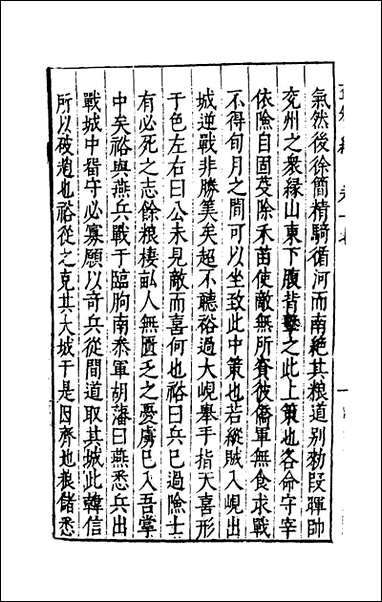 氣然後徐簡精騎循河而南絶其粮道别勑段暉帥
兖州之衆縁山東下腹背擊之此上策也各命守宰
依險自固芟除禾苗使敵無所資彼僑軍無食求戰
不得旬月之間可以坐致此中策也若縱賊入峴出
城逆戰非勝筭矣超不聽裕過大峴舉手指天喜形
于色左右曰公未見敵而喜何也裕曰兵已過險士
有必死之志餘粮棲畝人無匱乏之憂虜已入吾掌
中矣裕與燕兵戰于臨朐南叅軍胡藩曰燕悉兵出
戰城中畱守必寡願以竒兵從間道取其城此韓信
所以破趙也裕從之克其大城于是因齊地粮儲悉